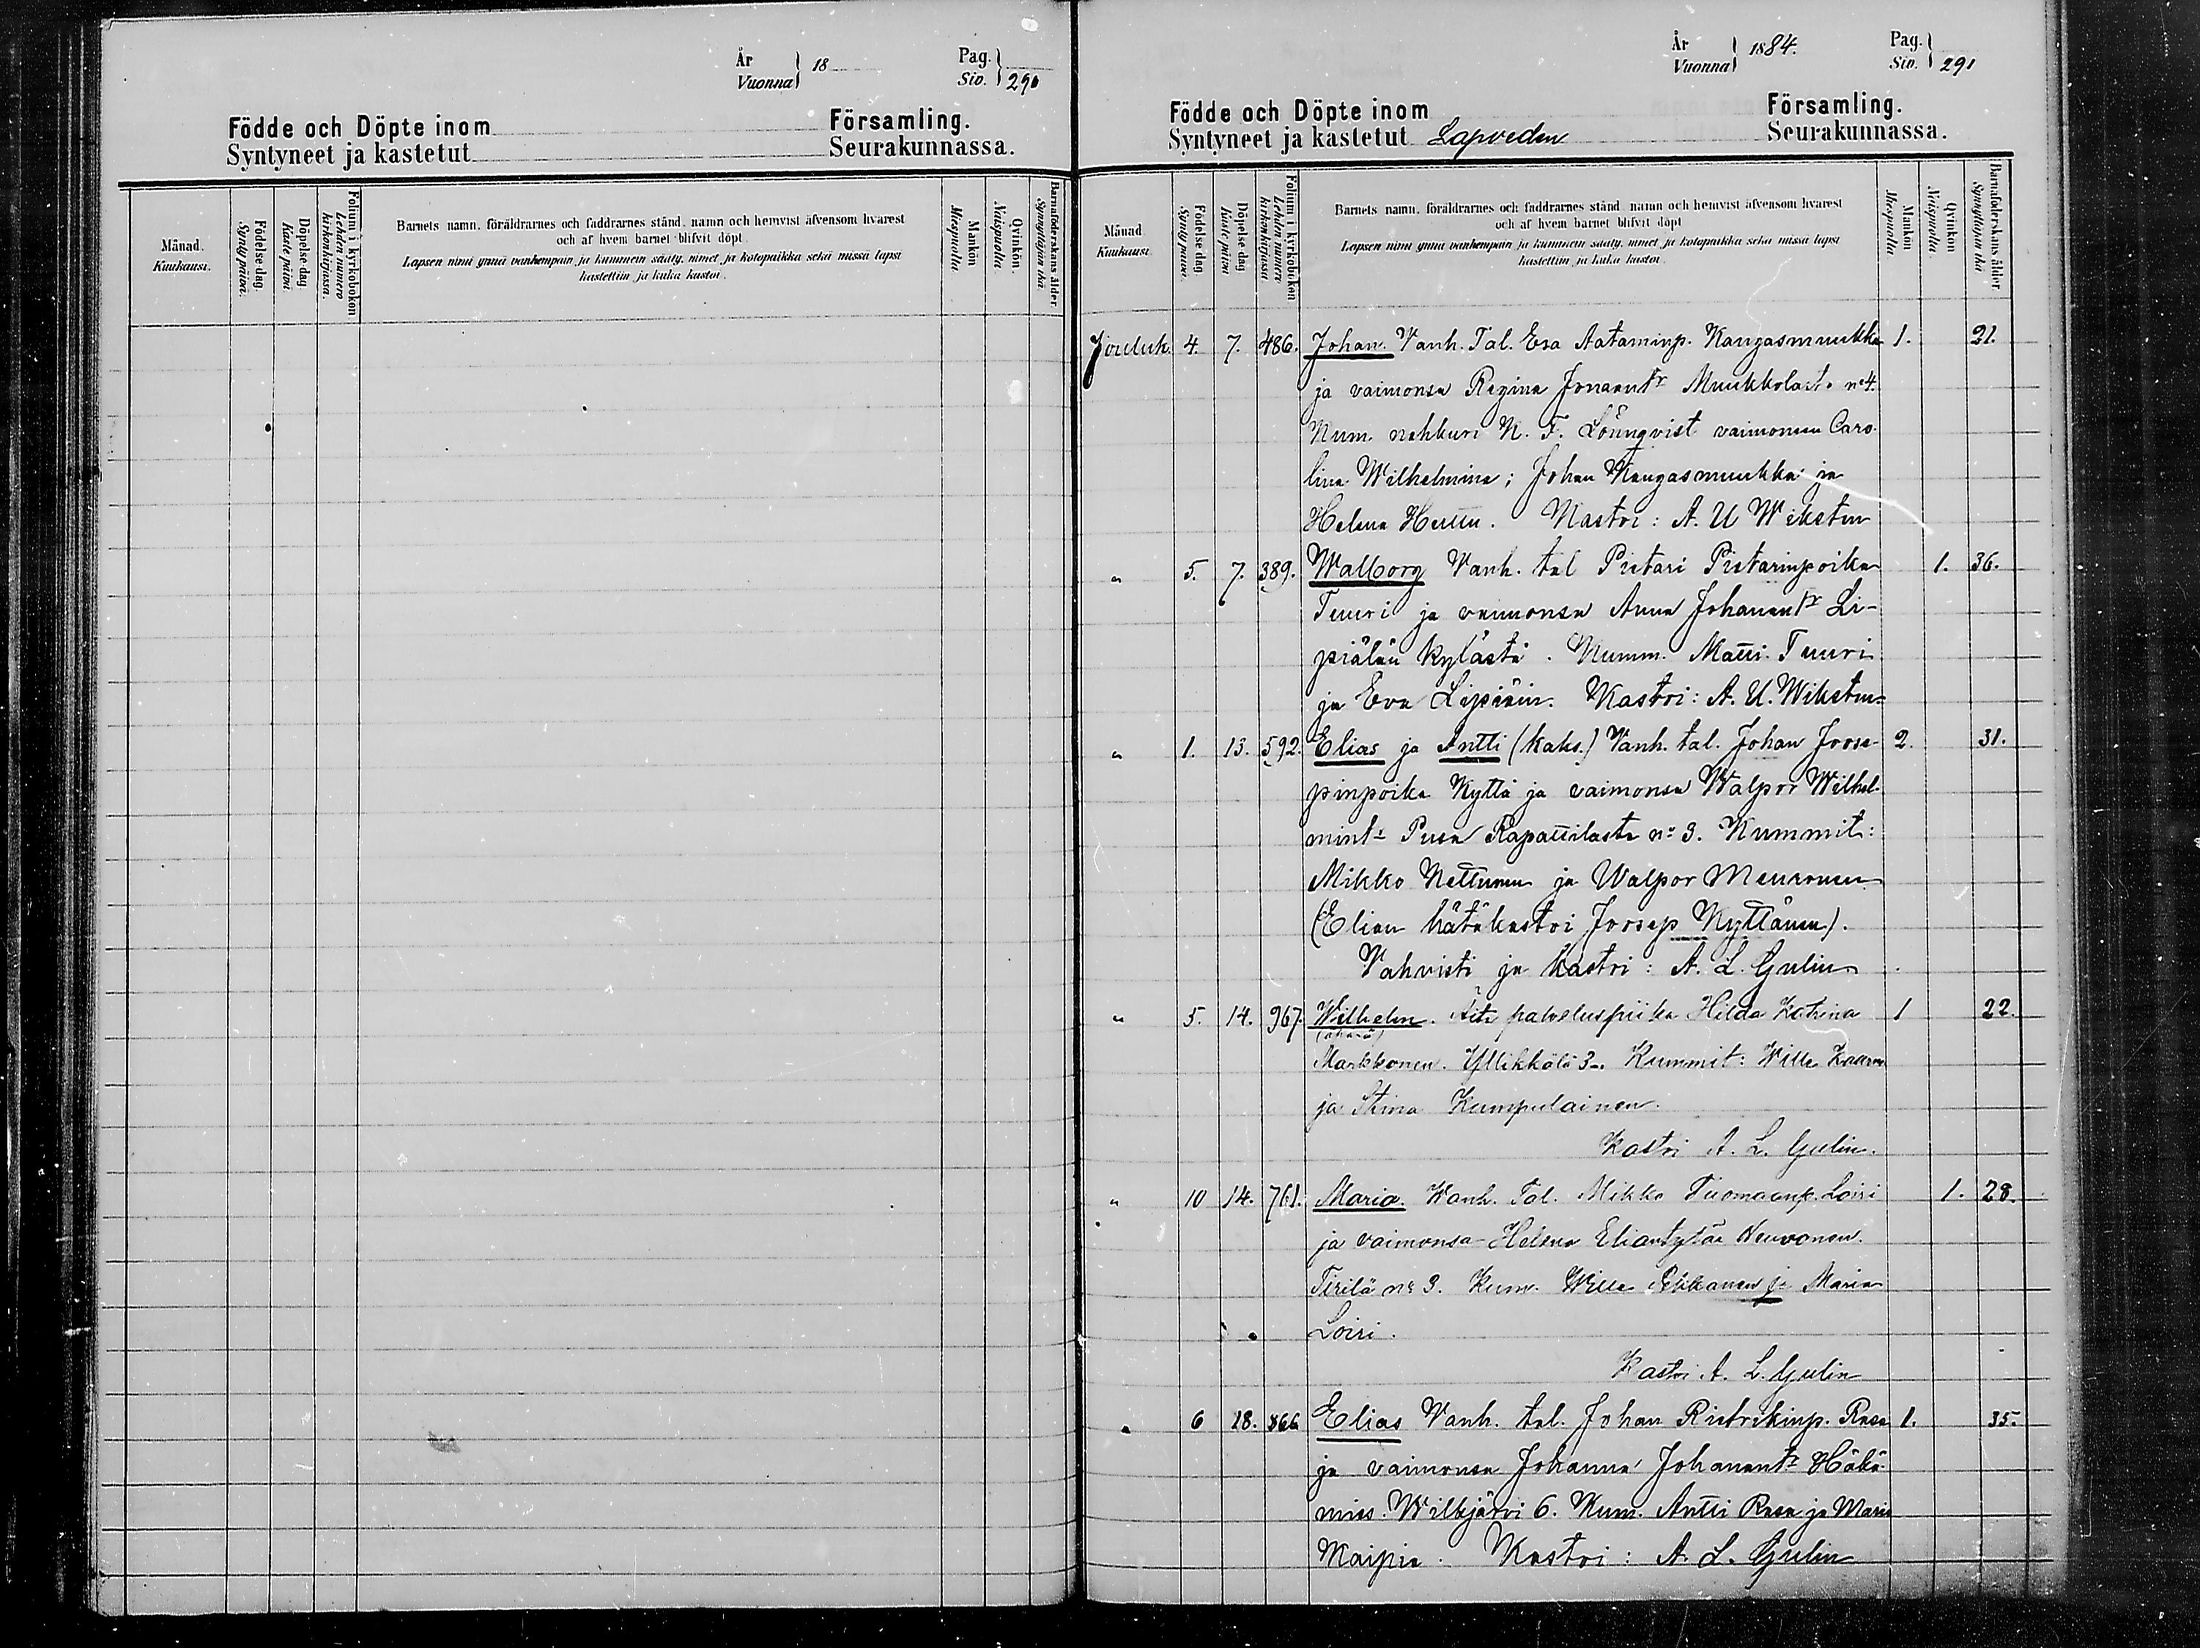 År
Vuonna } 18
Pag.
Siv. } 290
Födde och Döpte inom Församling.
Syntyneet ja kastetut Seurakunnassa.
Månad.
Kuukausi.
Födelse dag.
Synty päivä.
Döpelse dag
Kaste päivä
Folium i kyrkoboken
Lehden numero kirkonkirjassa.
Barnets namn, föräldrarnes och faddrarnes stånd, namn och hemvist äfvensom hvarest
och af hvem barnet blifvit döpt.
Lapsen nimi ynnä vanhempain ja kummein sääty, nimet ja kotopaikka sekä missä lapsi
kastettiin ja kuka kastoi.
Mankön
Miespuolia
Qvinkön.
Naispuolia
Barnaföderskans ålder.
Synnyttäjän ikä.
År
Vuonna } 1884.
Pag.
Siv. } 291
Födde och Döpte inom Församling.
Syntyneet ja kastetut Lapveden Seurakunnassa.
Månad
Kuukausi
Födelse dag
Synty päivä.
Döpelse dag
Kaste päivä
Folium i kyrkoboken
Lehden numero kirkonkirjassa.
Barnets namn, föräldrarnes och faddrarnes stånd, namn och hemvist äfvensom hvarest
och af hvem barnet blifvit döpt
Lapsen nimi ynnä vanhempain ja kummein sääty, nimet ja kotopaikka sekä missä lapsi
kastettiin ja kuka kastoi.
Mankön
Miespuolia
Qvinkön
Naispuolia.
Barnaföderskans ålder
Synnyttäjän ikä
Jouluk. 4. 7. 486. Johan. Vanh. Tal. Esa Aataminp. Kangasmuukka 1. 21.
ja vaimonsa Regina Jonaantr Muukkolasta no 4.
Kum. nahkuri K. F. Lönnqvist vaimonsa Caro-
lina Wilhelmina; Johan Kangasmuukka ja
Helena . Kastoi: A. U Wiksten
" 5. 7. 389. Walborg Vanh. tal Pietari Pietarinpoika 1. 36.
Tuuri ja vaimonsa Anna Johanantr Li-
piälän kylästä. Kumm. Matti Tuuri
ja Eva Lipiäin. Kastoi: A. U. Wiksten
" 1. 13. 592. Elias ja Antti (kaks.) Vanh. tal. Johan Joose- 2. 31.
pinpoika Kyttä ja vaimonsa Walpor Wilhel-
mintr Pusa Rapattilasta no 3. Kummit:
Mikko Nettunen ja Walpor Meuronen
(Elian hätäkastoi Joosep Kyttänen).
Vahvisti ja kastoi: A. L. Gulin
" 5. 14. 967. Wilhelm. Äiti palveluspiika Hilda Katrina 1 22.
(äpärä)
Markkonen. Yllikkälä 3. Kummit: Wille
ja Stina Kumpulainen.
Kastoi A. L. Gulin.
" 10 14. 761. Maria. Wanh. Tal. Mikko Tuomaanp. Loiri 1. 28.
ja vaimonsa Helena Eliantytär Neuvonen.
Tirilä no 3. Kum. Wille Pekkanen ja Maria
Loiri.
Kastoi A. L. Gulin
" 6 28. 866 Elias Vanh. tal. Johan Rietrikinp. Rasa 1. 35.
ja vaimonsa Johanna Johanantr Häkä-
mies. Wilkjärvi 6. Kum. Antti Rasa ja Maria
Kaipia. Kastoi: A. L. Gulin